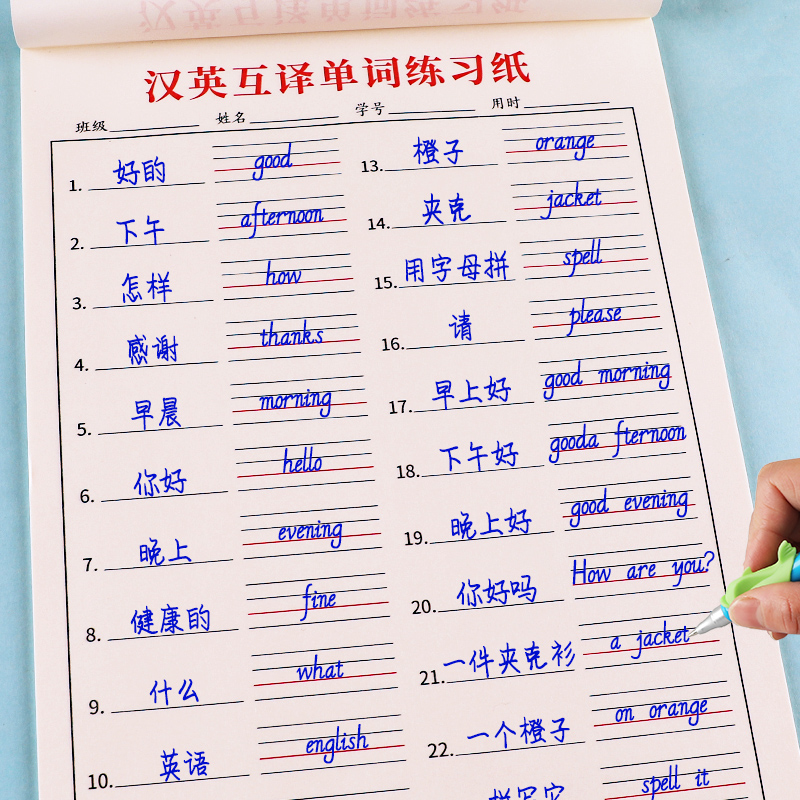 汉英互译单词练习纸
班级 姓名 学号 用时
1. 好的 good
2. 下午 afternoon
3. 怎样 how
4. 感谢 thanks
5. 早晨 morning
6. 你好 hello
7. 晚上 evening
8. 健康的 fine
9. 什么 what
10. 英语 english
13. 橙子 orange
14. 夹克 jacket
15. 用字母拼 spell
16. 请 please
17. 早上好 good morning
18. 下午好 gooda fternoon
19. 晚上好 good evening
20. 你好吗 How are you?
21. 一件夹克衫 a jacket
22. 一个橙子 on orange
spell it